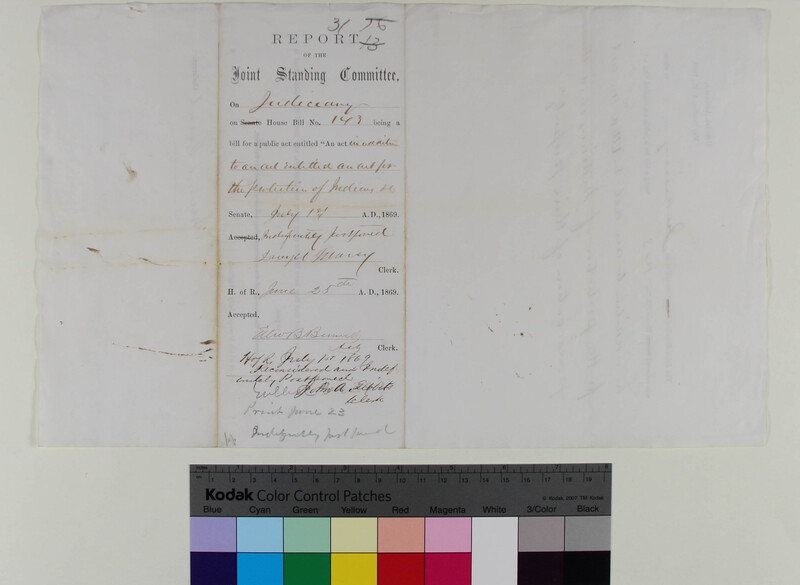 31 76
REPORT 13
OF THE
Joint Standing Committee,
On Judiciary
on Senate House Bill No. 143 being a
bill for a public act entitled "An act in addition
to an act entitled an act for
the protection of Indians &c
Senate, July 1st A. D., 1869.
Accepted, Indefinitely postponed
Clerk.
H. of R., June 25th A. D., 1869.
Accepted,
Clerk.
H of R July 1st 1869
Reconsidered and Indef
initely Postponed
John A. Tibbits
Clerk
Print June 23
Indefinitely postponed
Kodak Color Control Patches
© Kodak, 2007 TM: Kodak
Blue Cyan Green Yellow Red Magenta White 3/Color Black